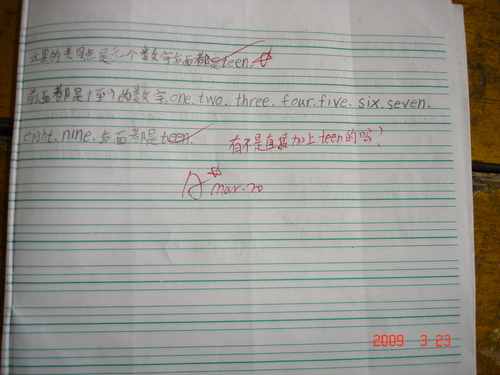 这里的共同点是每个数字后面都是teen.
前面都是1至9的数字,one.two.three.four.five.six.seven.
eight.nine.后面都是teen.
有不是直接加上teen的吗?
A
mar.20
2009 3 23